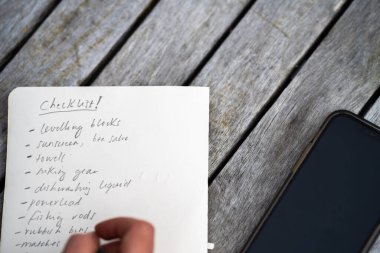 Checklist!
- levelling blocks
- sunscreen, bee sabre
- towels
- hiking gear
- dishwashing liquid
- powerlead
- fishing rods
- rubbish bins
- matches